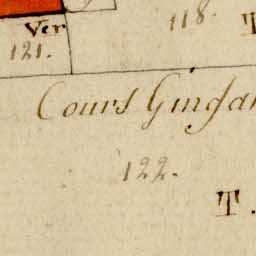 118. T
Ver
121.
Cours Gingan
122.
T.